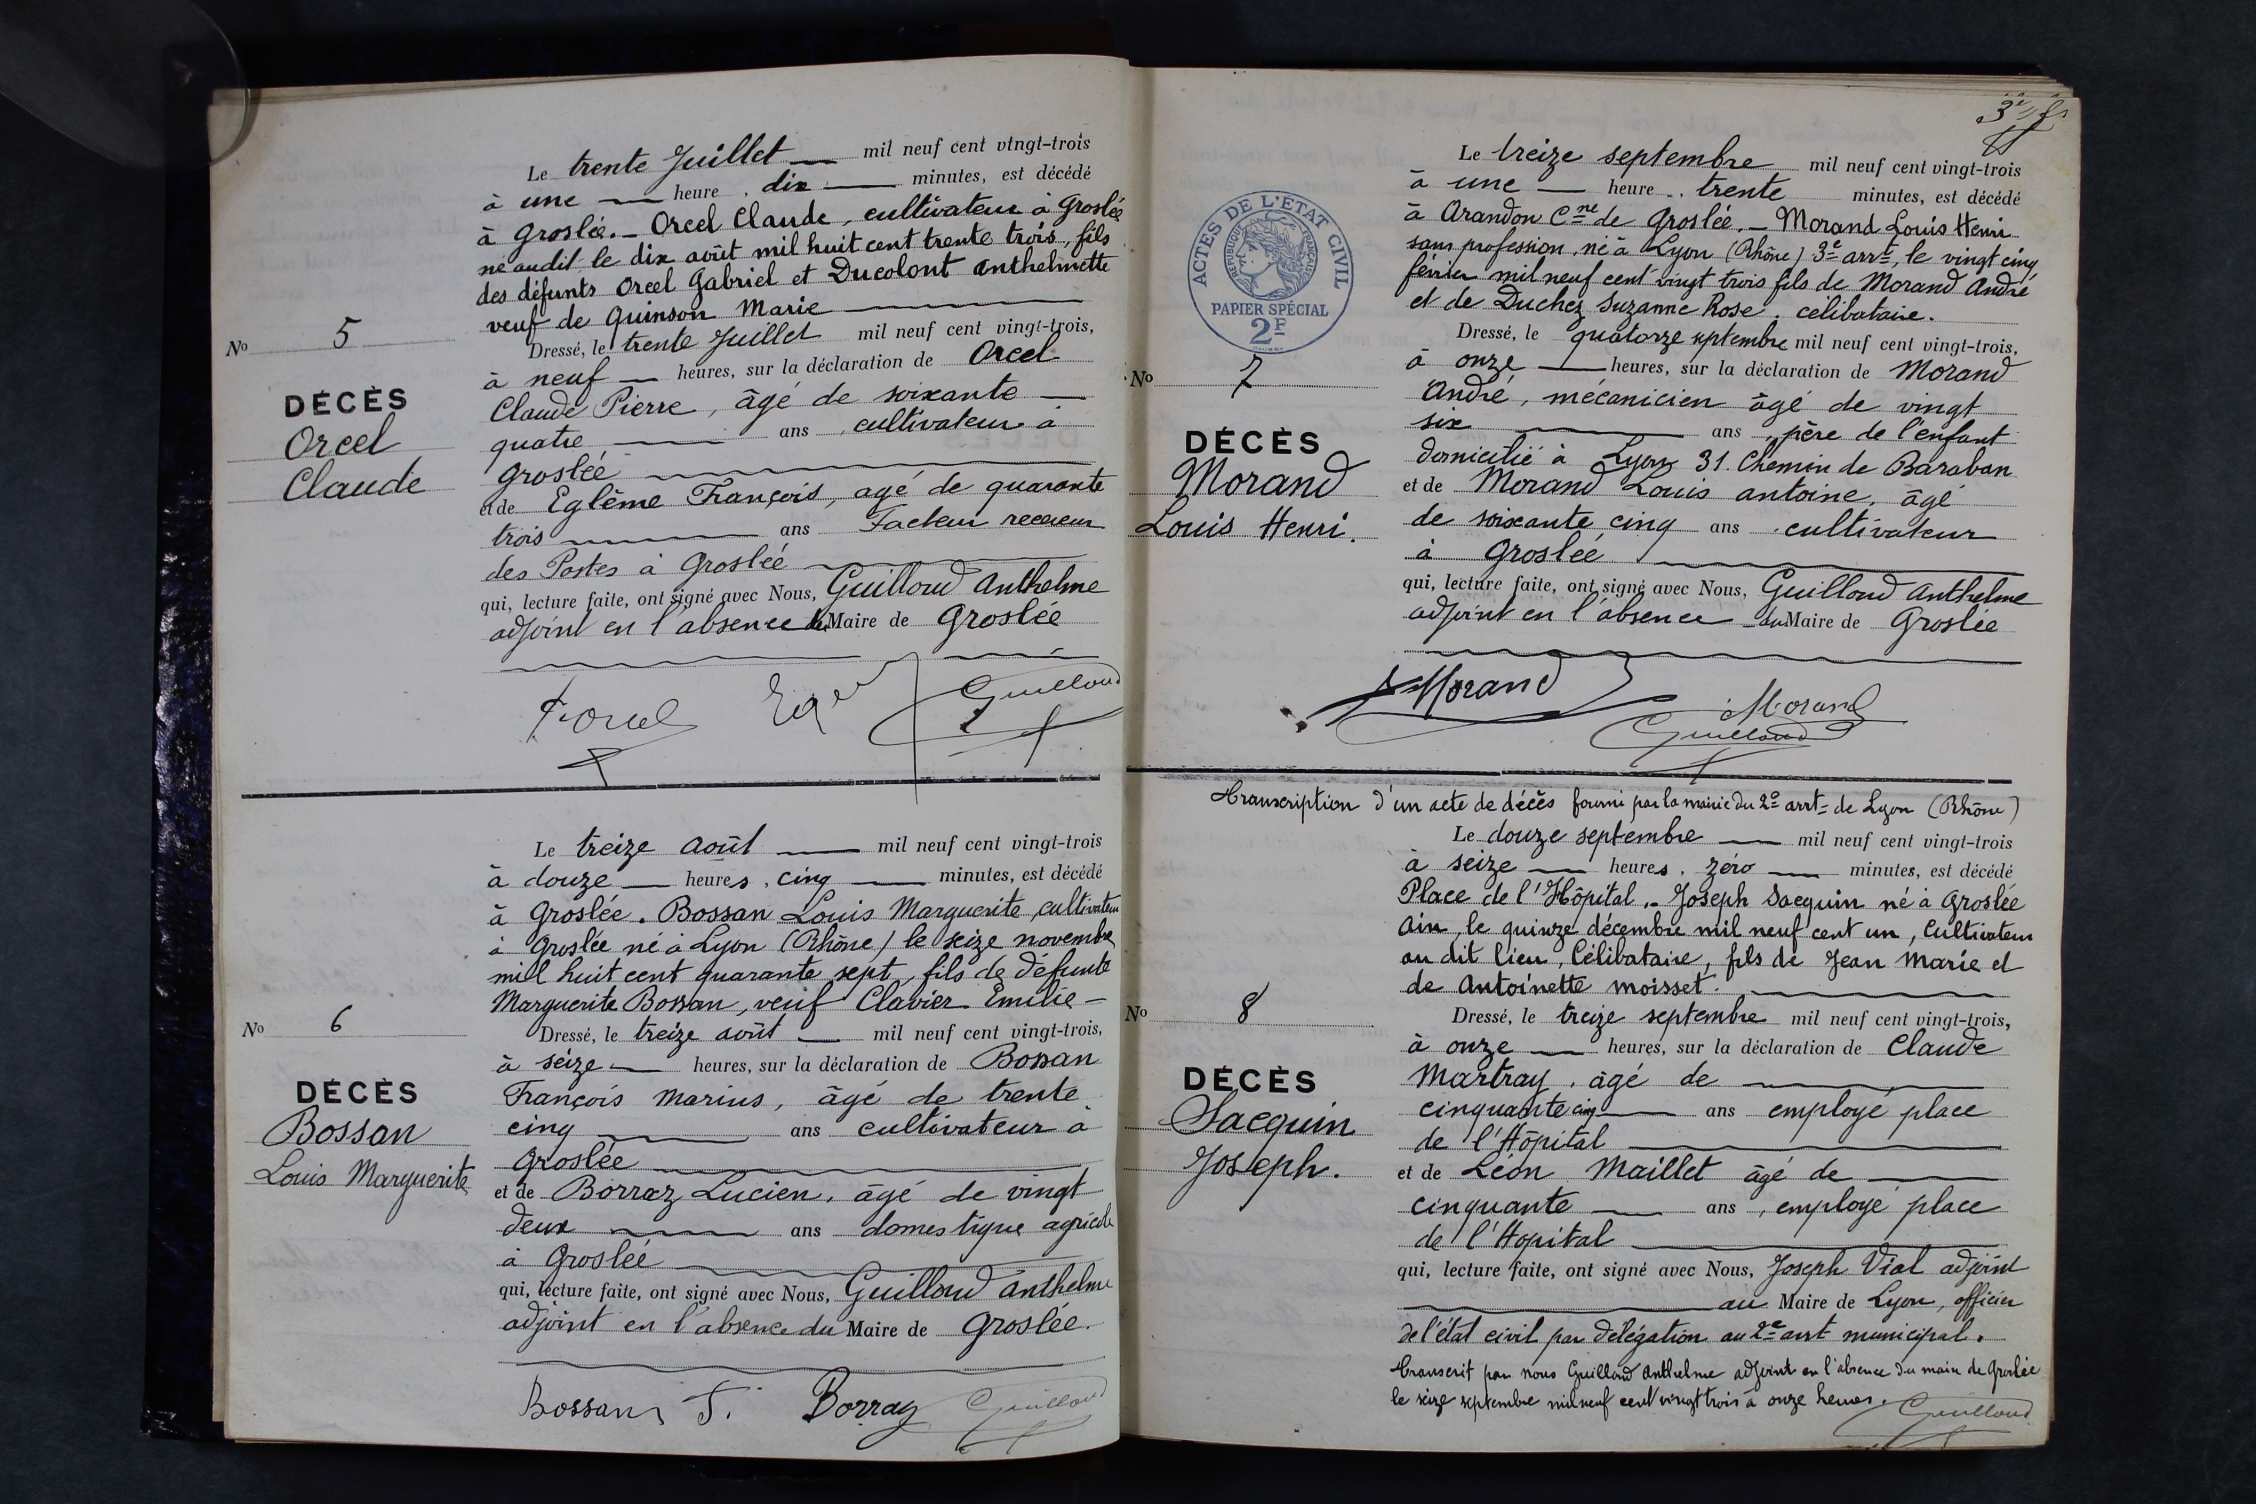 Le trente Juillet mil neuf cent vingt-trois
à une heure, dix minutes, est décédé
à Groslée. Orcel Claude, cultivateur à Groslée
né audit le dix août mil huit cent trente trois, fils
des défunts Orcel Gabriel et Ducolont Anthelmette
veuf de Quinson Marie
Dressé, le trente Juillet mil neuf cent vingt-trois,
à neuf heures, sur la déclaration de Orcel
Claude Pierre, âgé de soixante
quatre ans cultivateur à
Groslée
et de Eglème François, agé de quarante
trois ans Facteur receveur
des Postes à Groslée
qui, lecture faite, ont signé avec Nous, Guilloud Anthelme
adjoint en l'absence du Maire de Groslée
Guilloud
No 5
DÉCÈS
Orcel
Claude
Le treize août mil neuf cent vingt-trois
à douze heures, cinq minutes, est décédé
à Groslée. Bossan Louis Marguerite, cultivateur
à Groslée né à Lyon (Rhône) le seize novembre
mill huit cent quarante sept, fils de défunte
Marguerite Bossan, veuf Clavier Emilie
Dressé, le treize août mil neuf cent vingt-trois,
à seize heures, sur la déclaration de Bossan
François Marius, âgé de trente
cinq ans cultivateur à
Groslée
et de Borraz Lucien, âgé de vingt
deux ans domestique agricole
à Groslée
qui, lecture faite, ont signé avec Nous, Guilloud Anthelme
adjoint en l'absence du Maire de Groslée.
Bossan F. Borraz Guilloud
No 6
DÉCÈS
Bossan
Louis Marguerite
3e
ACTES DE L'ÉTAT CIVIL
RÉPUBLIQUE FRANÇAISE
PAPIER SPÉCIAL
2F
Le treize septembre mil neuf cent vingt-trois
à une heure, trente minutes, est décédé
à Arandon Cne de Groslée. Morand Louis Henri
sans profession, né à Lyon (Rhône) 3e arrt, le vingt cinq
février mil neuf cent vingt trois fils de Morand André
et de Duchez Suzanne Rose. célibataire.
Dressé, le quatorze septembre mil neuf cent vingt-trois,
à onze heures, sur la déclaration de Morand
André, mécanicien âgé de vingt
six ans, père de l'enfant
domicilié à Lyon 31. Chemin de Baraban
et de Morand Louis antoine, âgé
de soixante cinq ans, cultivateur
à Groslée
qui, lecture faite, ont signé avec Nous, Guilloud Anthelme
adjoint en l'absence du Maire de Groslée
Morand Morand
Guilloud
No 7
DÉCÈS
Morand
Louis Henri.
Transcription d'un acte de décès fourni par la mairie du 2e arrt de Lyon (Rhône)
Le douze septembre mil neuf cent vingt-trois
à seize heures, zéro minutes, est décédé
Place de l'Hôpital. Joseph Sacquin né à Groslée
Ain, le quinze décembre mil neuf cent un, Cultivateur
au dit lieu, Célibataire, fils de Jean Marie et
de Antoinette Moisset.
Dressé, le treize septembre mil neuf cent vingt-trois,
à onze heures, sur la déclaration de Claude
Martray, âgé de
cinquante cinq ans employé place
de l'Hôpital
et de Léon Maillet âgé de
cinquante ans, employé place
de l'Hopital
qui, lecture faite, ont signé avec Nous, Joseph Vial adjoint
au Maire de Lyon, officier
de l'état civil par délégation au 2e arrt municipal.
Transcrit par nous Guilloud Anthelme adjoint en l'absence du maire de Groslée
le seize septembre mil neuf cent vingt trois à onze heures.
Guilloud
No 8
DÉCÈS
Sacquin
Joseph.